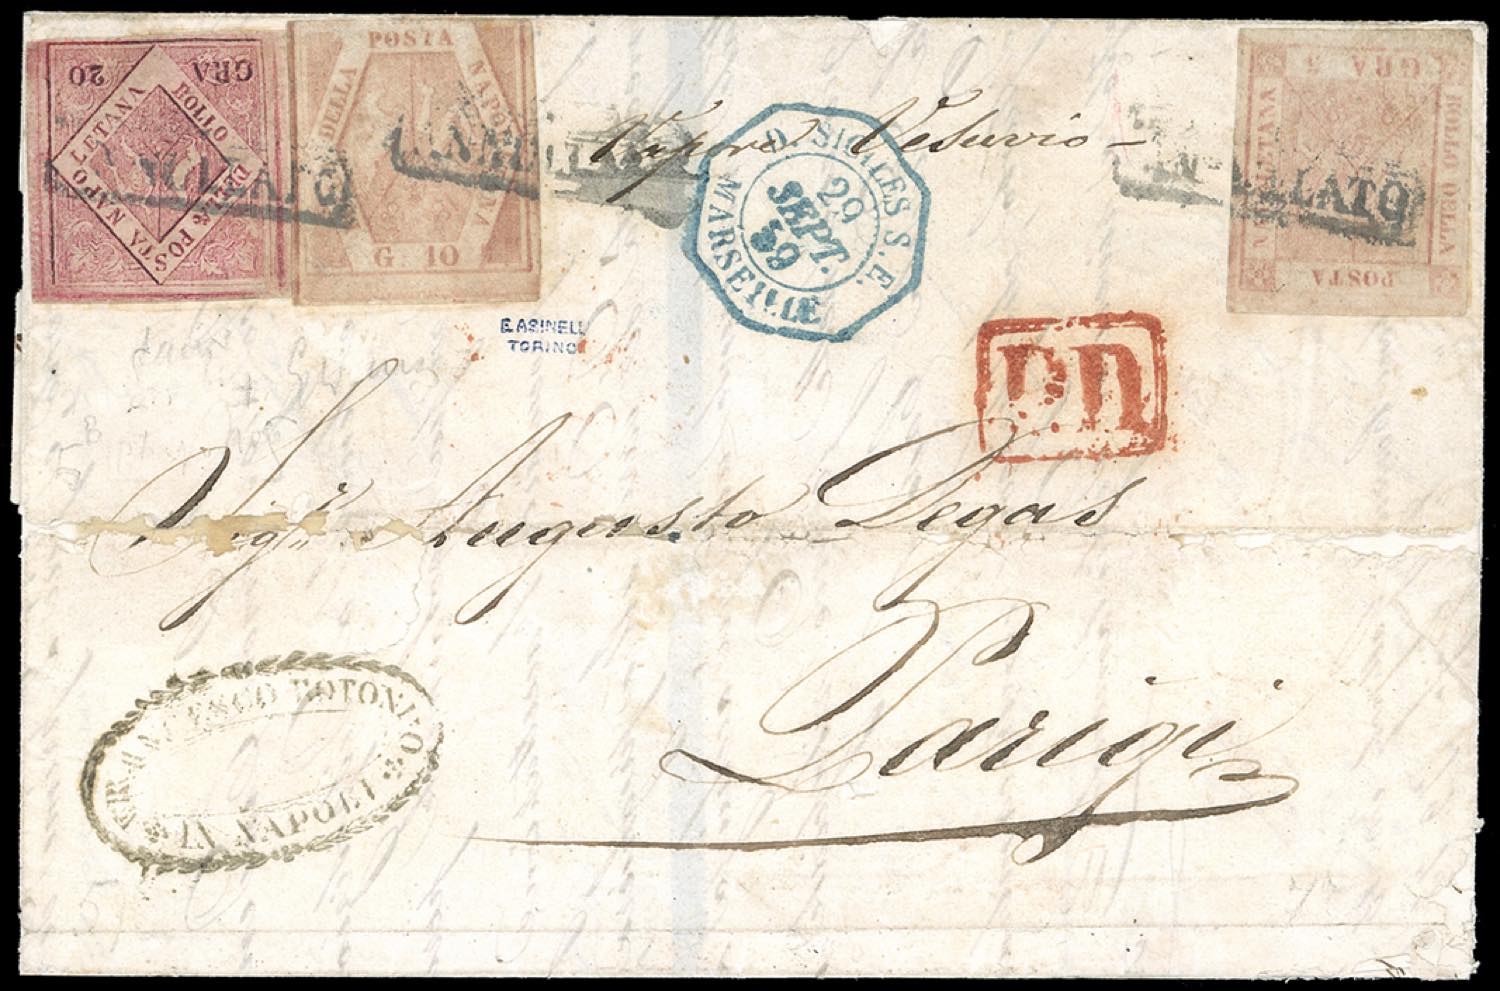 GRA 20
BOLLO DELLA POSTA NAPOLETANA
ANNULLATO
POSTA NAPOLETANA DELLA
G. 10
ANNULLATO
Vapore Vesuvio
2 SICILES S.E.
29
SEPT.
59
MARSEILLE
GRA 5
BOLLO DELLA POSTA NAPOLETANA
ANNULLATO
E. ASINELLI
TORINO
P.D.
Sigr Augusto Degas
Parigi
FRANCESCO
IN NAPOLI